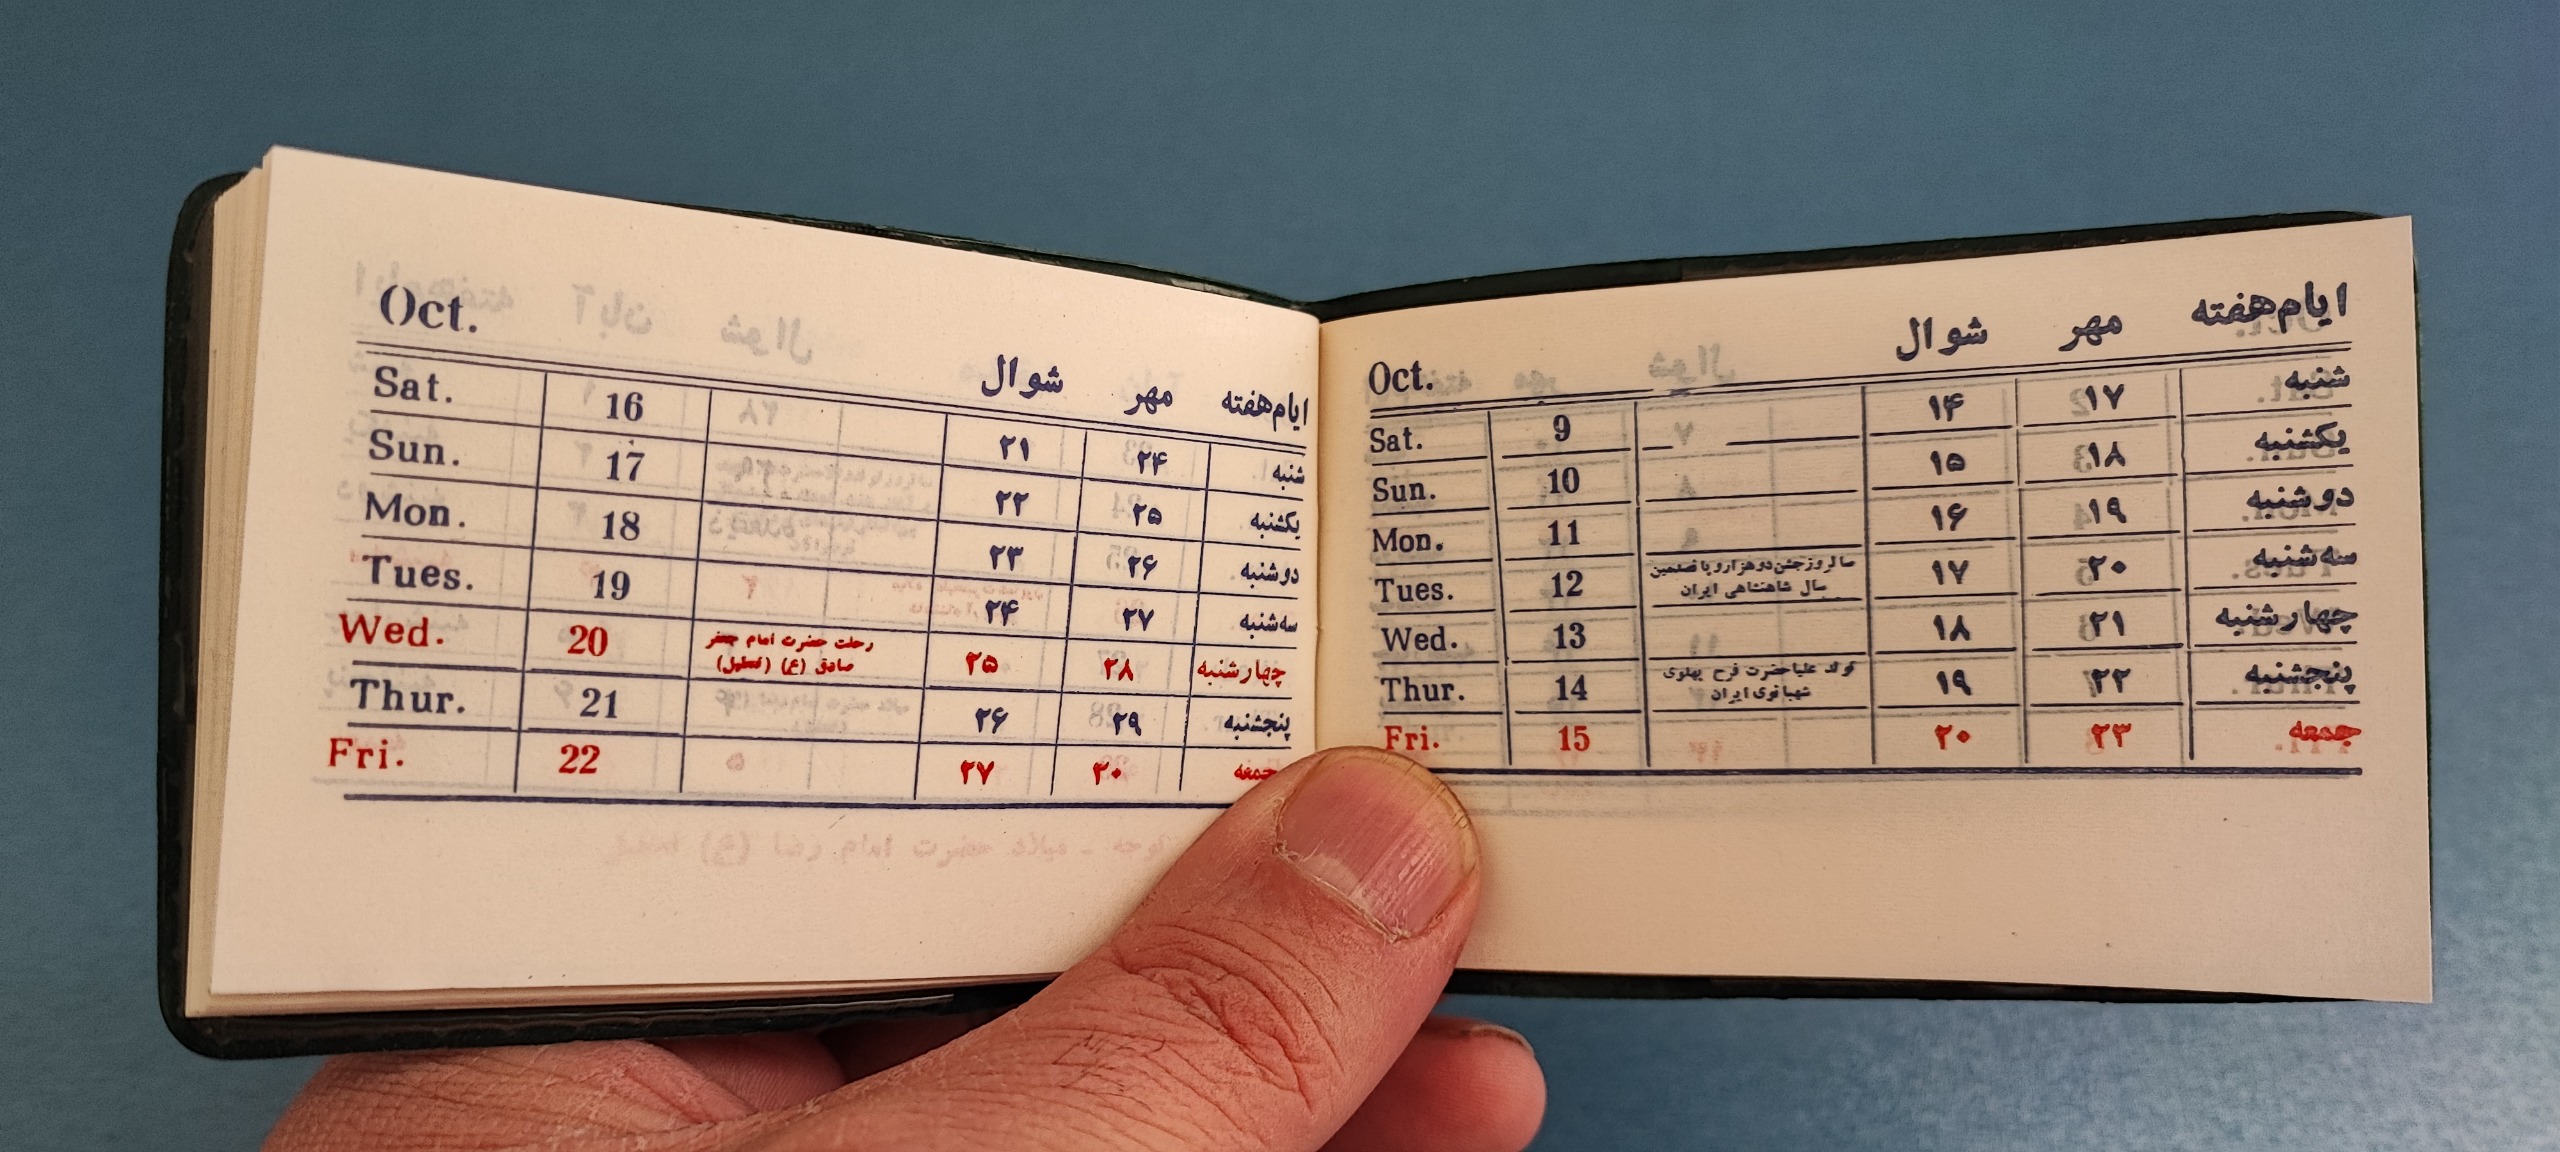 ایام هفته مهر شوال Oct.
شنبه ۱۷ ۱۴ 9 Sat.
یکشنبه ۱۸ ۱۵ 10 Sun.
دوشنبه ۱۹ ۱۶ 11 Mon.
سه شنبه ۲۰ ۱۷ سالروز جشن دو هزار و پانصدمین 12 Tues.
سال شاهنشاهی ایران
چهارشنبه ۲۱ ۱۸ 13 Wed.
پنجشنبه ۲۲ ۱۹ تولد علیاحضرت فرح پهلوی 14 Thur.
شهبانوی ایران
جمعه ۲۳ ۲۰ 15 Fri.
ایام هفته مهر شوال Oct.
شنبه ۲۴ ۲۱ 16 Sat.
یکشنبه ۲۵ ۲۲ 17 Sun.
دوشنبه ۲۶ ۲۳ 18 Mon.
سه شنبه ۲۷ ۲۴ 19 Tues.
چهارشنبه ۲۸ ۲۵ رحلت حضرت امام جعفر 20 Wed.
صادق (ع) (تعطیل)
پنجشنبه ۲۹ ۲۶ 21 Thur.
جمعه ۳۰ ۲۷ 22 Fri.